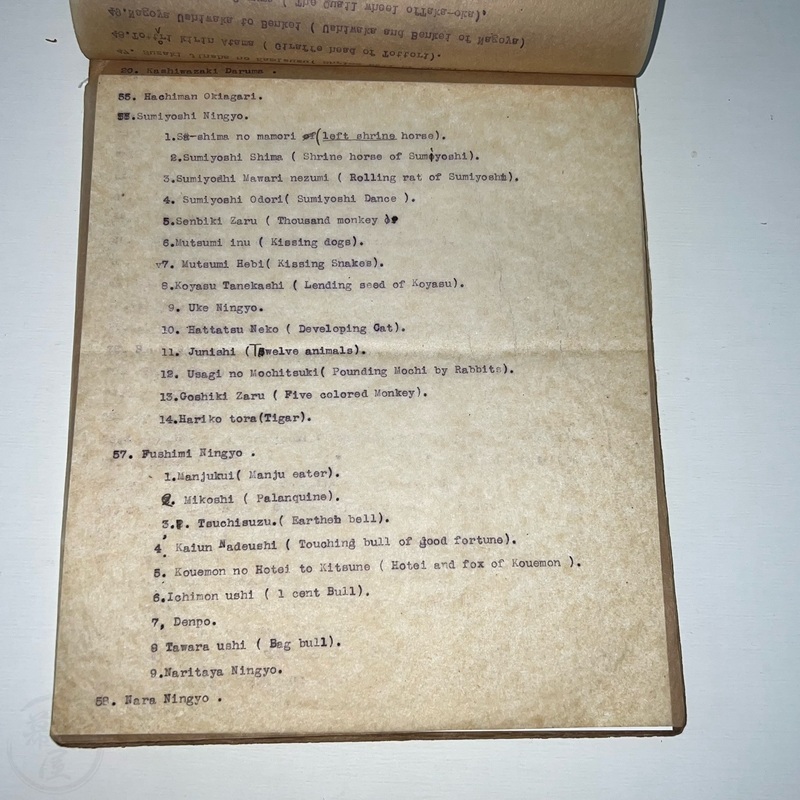 ( The Quail wheel ofTaka-oka).
48.Nagoya Ushiwaka to Benkei ( Ushiwaka and Benkei of Nagoya)
Kirin Atama ( Giraffe head of Tottori).
Kashiwazaki Daruma .
55. Hachiman Okiagari.
Sumiyoshi Ningyo.
1.Sa-shima no mamori (left shrine horse).
2.Sumiyoshi Shima ( Shrine horse of Sumiyoshi).
3.Sumiyoshi Mawari nezumi ( Rolling rat of Sumiyoshi).
4. Sumiyoshi Odori( Sumiyoshi Dance ).
5.Senbiki Zaru ( Thousand monkey
6.Mutsumi inu ( Kissing dogs).
7. Mutsumi Hebi( Kissing Snakes).
8.Koyasu Tanekashi ( Lending seed of Koyasu).
9. Uke Ningyo.
10. Hattatsu Neko ( Developing Cat).
11. Junishi (Twelve animals).
12. Usagi no Mochitsuki( Pounding Mochi by Rabbits).
13.Goshiki Zaru ( Five colored Monkey).
14.Hariko tora(Tigar).
57. Fushimi Ningyo .
1.Manjukui( Manju eater).
2. Mikoshi ( Palanquine).
3. Tsuchisuzu.( Earthen bell).
4. Kaiun Nadeushi ( Touching bull of good fortune).
5. Kouemon no Hotei to Kitsune ( Hotei and fox of Kouemon ).
6.Ichimon ushi ( 1 cent Bull).
7, Denpo.
8 Tawara ushi ( Bag bull).
9.Naritaya Ningyo.
58. Nara Ningyo .